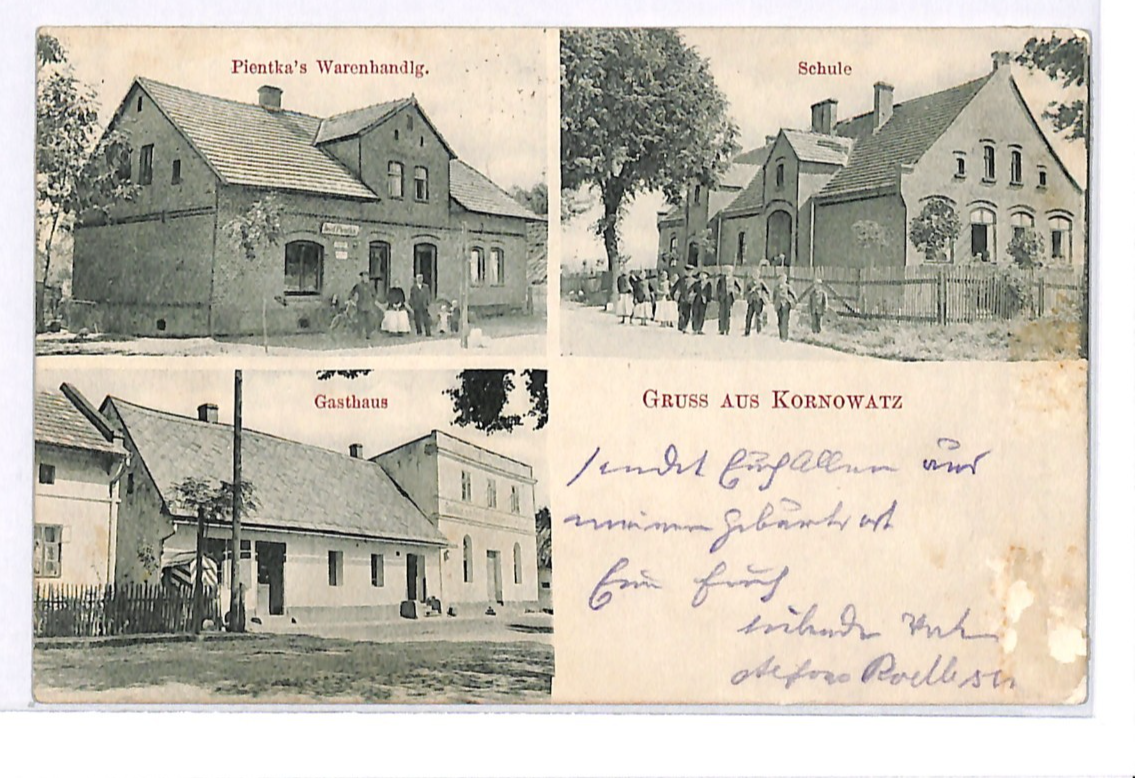 Pientka's Warenhandlg.
Schule
Gasthaus
Gruss aus Kornowatz
sendet Euch Allen aus
meinem Geburtsort
Euch
liebende